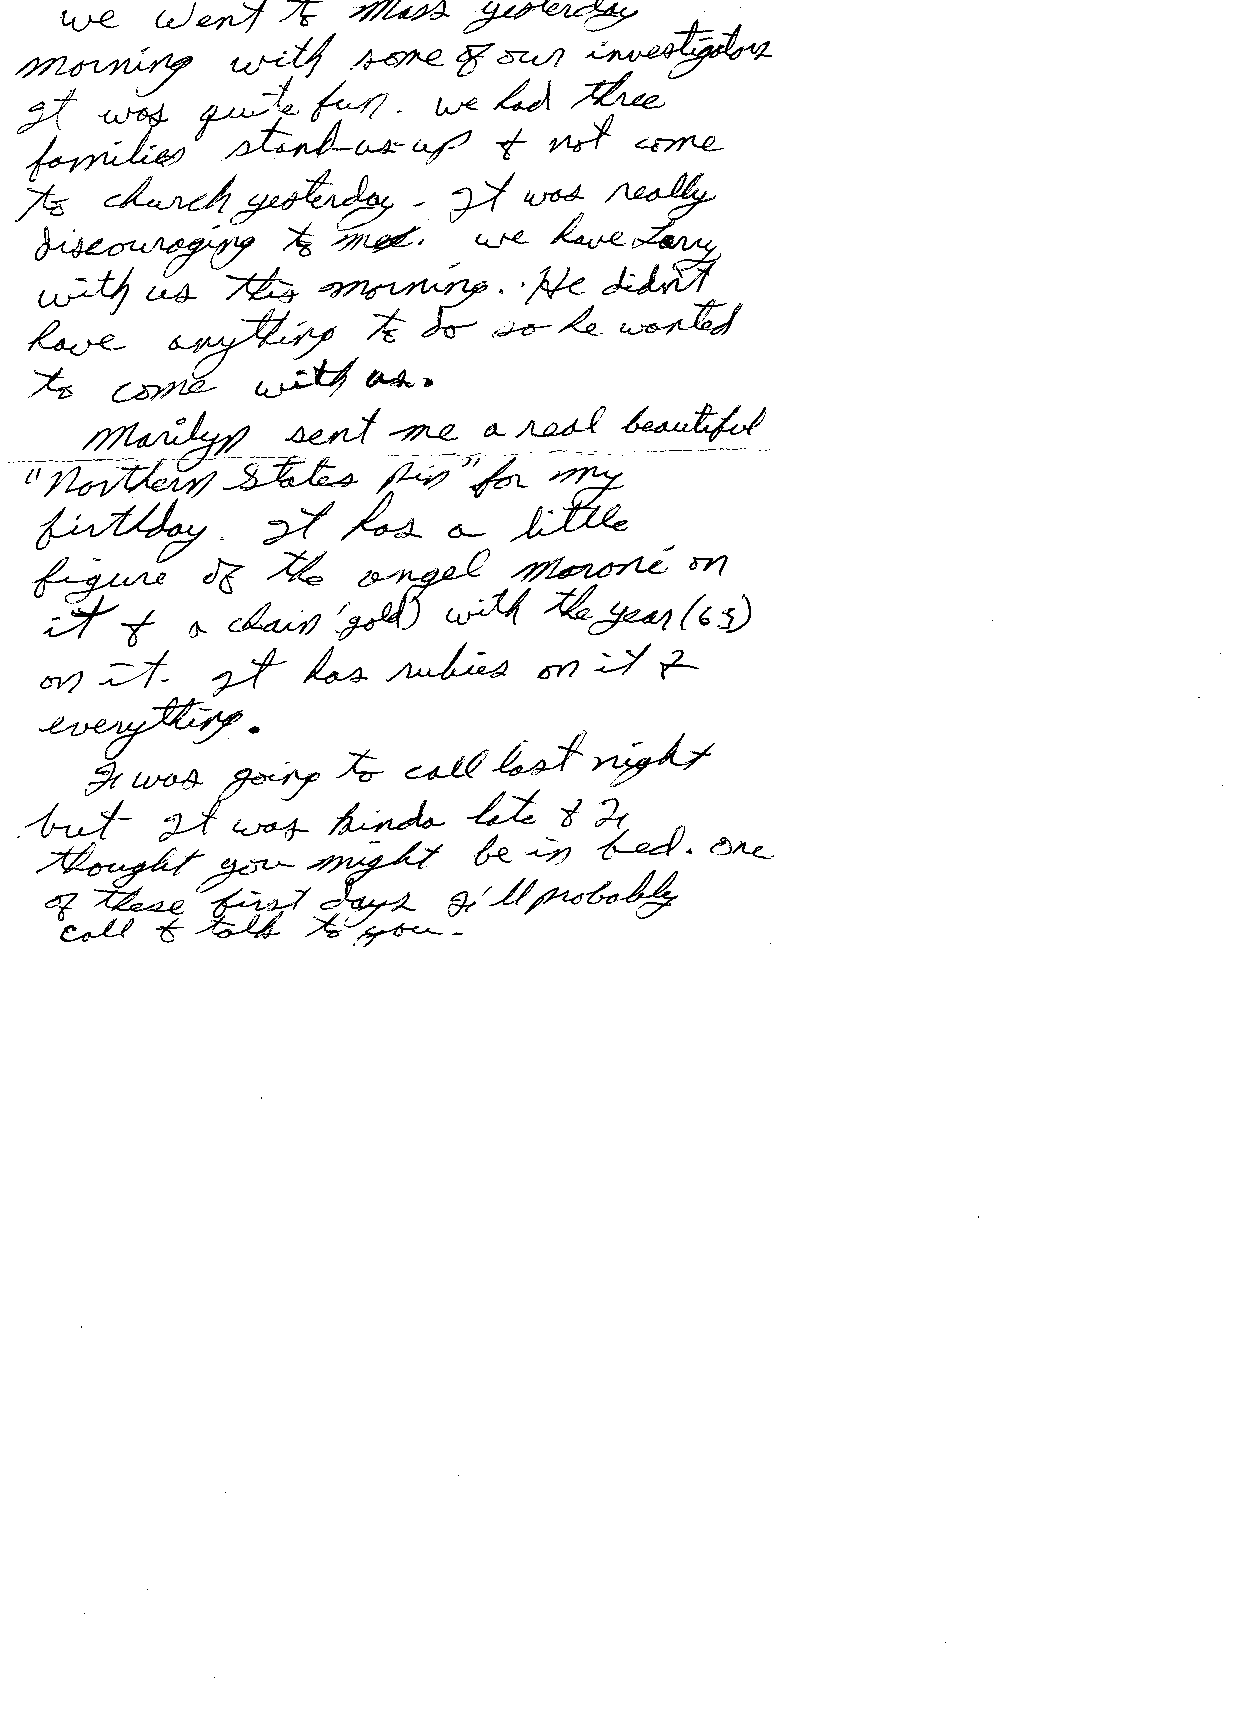 we went to Mass yesterday
morning with some of our investigators
It was quite fun. we had three
families stand-us-up & not come
to church yesterday. It was really
discouraging to me. we have Larry
with us this morning. He didn't
have anything to do so he wanted
to come with us.
Marilyn sent me a real beautiful
"Northern States Pin" for my
birthday. It has a little
figure of the angel Moroni on
it & a chain (gold) with the year (65)
on it. It has rubies on it &
everything.
I was going to call last night
but It was kinda late & I
thought you might be in bed. One
of these first days I'll probably
call & talk to you.